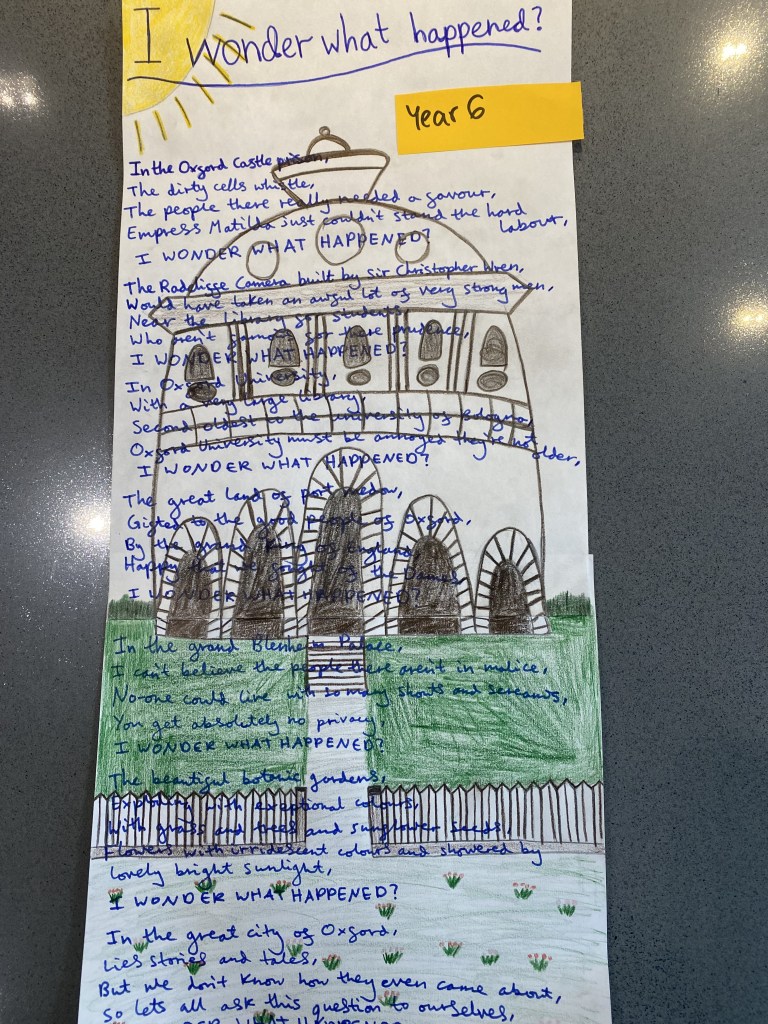 I wonder what happened?
Year 6
In the Oxford Castle prison,
The dirty cells whistle,
The people there really needed a favour,
Empress Matilda just couldn't stand the hard
labour,
I WONDER WHAT HAPPENED?
The Radcliffe Camera built by sir Christopher Wren,
Would have taken an awful lot of very strong men,
Near the library for students,
Who aren't famous for there prudence,
I WONDER WHAT HAPPENED?
In Oxford University,
With a very large library,
Second oldest to the university of Bologna,
Oxford University must be annoyed they're not older,
I WONDER WHAT HAPPENED?
The great land of port medow,
Gifted to the good people of Oxford,
By the grand King of England,
Happy that we fought of the Danes
I WONDER WHAT HAPPENED?
In the grand Blenheim Palace,
I can't believe the people there aren't in malice,
No-one could live with so many shouts and screams,
You get absolutely no privacy,
I WONDER WHAT HAPPENED?
The beautiful botanic gardens,
Exploding with exceptional colours,
With grass and trees and sunflower seeds,
Flowers with irridescent colours and showered by
lovely bright sunlight,
I WONDER WHAT HAPPENED?
In the great city of Oxford,
Lies stories and tales,
But we don't know how they even came about,
So lets all ask this question to ourselves,
WONDER WHAT HAPPENED